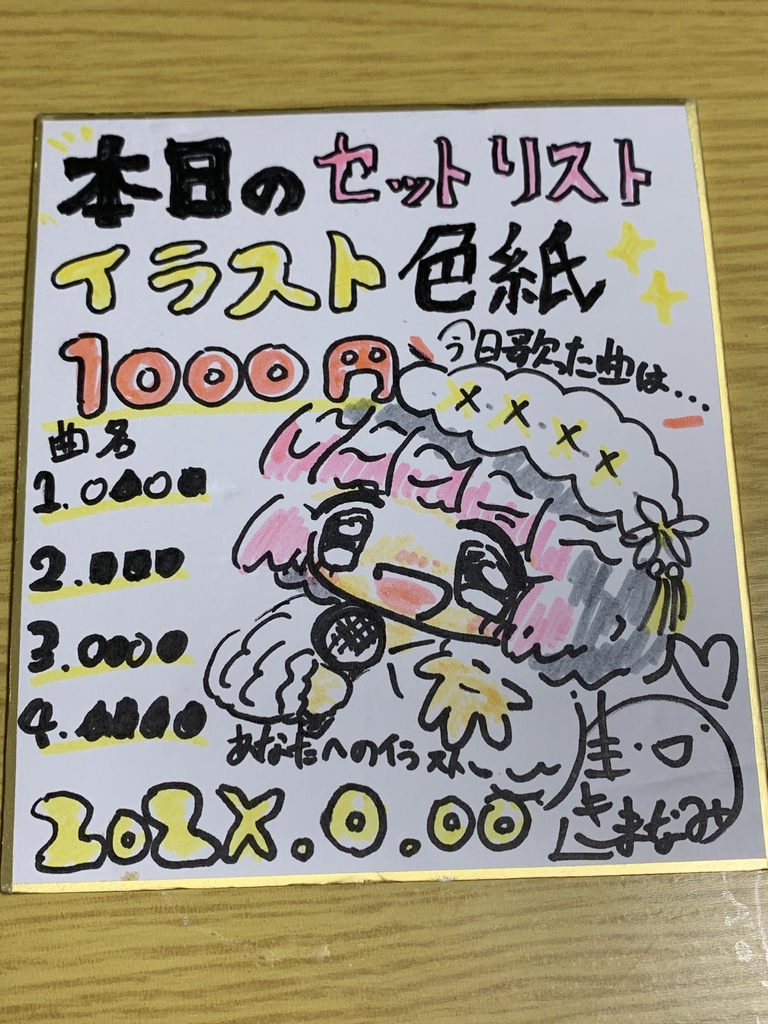 本日のセットリスト
イラスト色紙
1000円
今日歌った曲は...
曲名
1.○●●●
2.●●●
3.○○○●
4.●●●●
あなたへのイラスト
202X.0.00
きまなみ